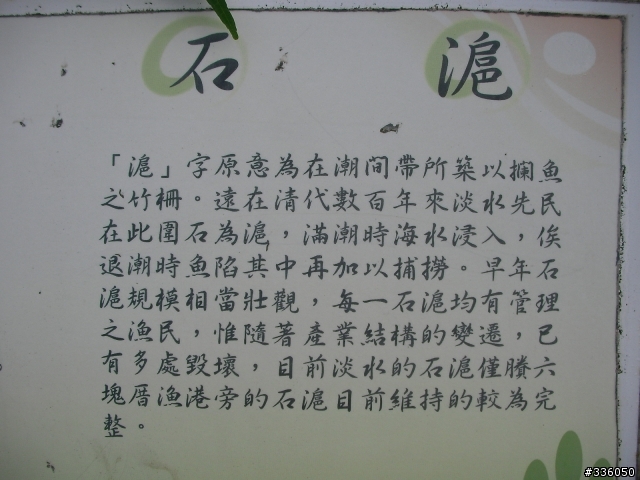 石滬
「滬」字原意為在潮間帶所築以攔魚
之竹柵。遠在清代數百年來淡水先民
在此圍石為滬，滿潮時海水浸入，俟
退潮時魚陷其中再加以捕撈。早年石
滬規模相當壯觀，每一石滬均有管理
之漁民，惟隨著產業結構的變遷，已
有多處毀壞，目前淡水的石滬僅賸六
塊厝漁港旁的石滬目前維持的較為完
整。
#336050